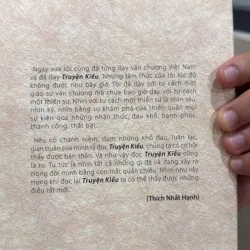 Ngày xưa tôi cũng đã từng dạy văn chương Việt Nam
và đã dạy Truyện Kiều. Nhưng tâm thức của tôi lúc đó
không được như bây giờ. Tôi đã dạy với tư cách một
giáo sư văn chương mà chưa bao giờ dạy với tư cách
một thiền sư. Nhìn với tư cách một thiền sư là nhìn sâu,
nhìn kỹ, nhìn bằng sự khám phá của thiền quán mọi
sự kiện qua những nhận thức, đau khổ, hạnh phúc,
thành công, thất bại...
Nếu có chánh niệm, đem những khổ đau, luân lạc,
gian truân của mình đọc Truyện Kiều chúng ta có cơ hội
thấy được bản thân. Và như vậy đọc Truyện Kiều cũng
là tu. Tu tức là nhìn tất cả những gì đã và đang xảy ra
trong đời mình bằng con mắt quán chiếu. Nhìn như vậy
trong khi đọc lại Truyện Kiều ta có thể thấy được những
điều rất mới.
(Thích Nhất Hạnh)